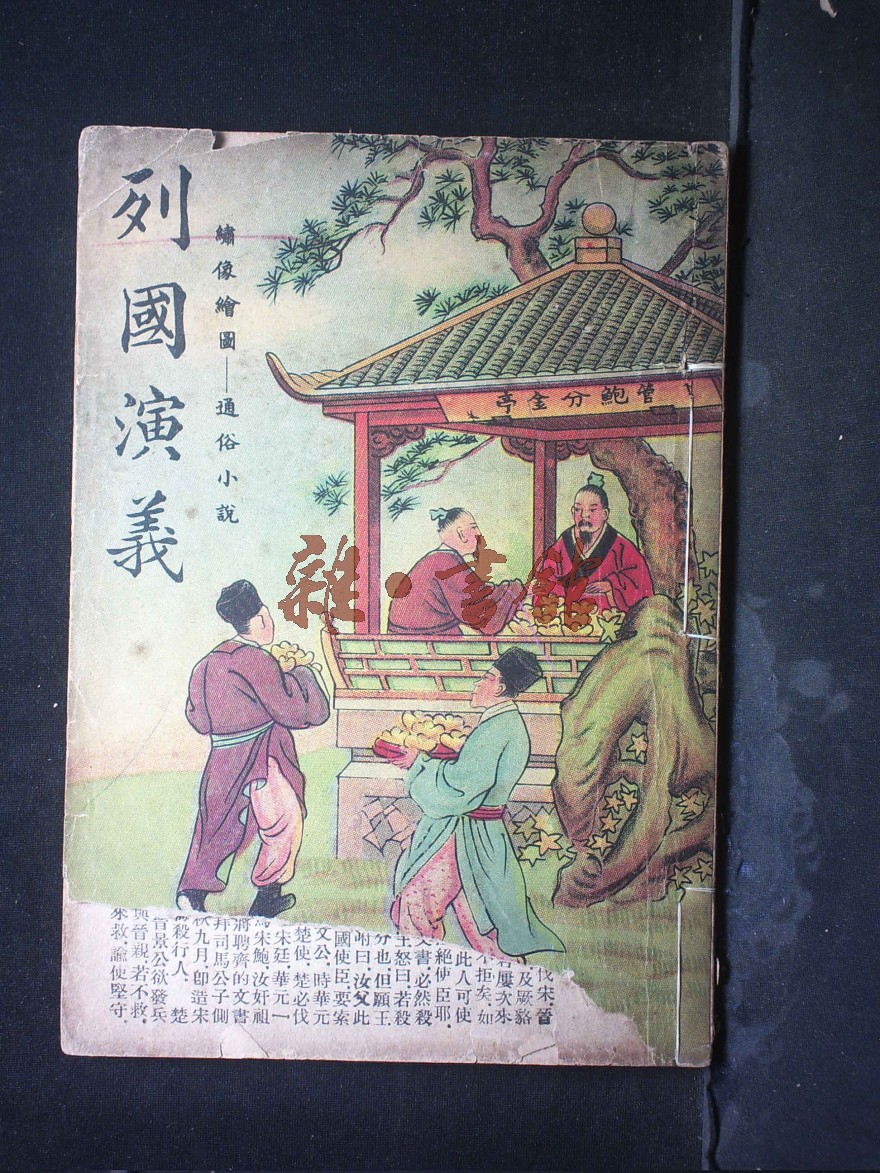 列國演義
繡像繪圖—通俗小說
管鮑分金亭
雜·書館
伐宋晉
及厥貉
屢次來
不拒矣如
此人可使
絕使臣耶
文書必然殺
王怒曰若殺
分也但願王
咐曰汝父此
國使臣要索
文公時華元
楚使楚必伐
宋廷華元一
馬宋鮑汝奸祖
將聘齊的文書
拜司馬公子側
秋九月卽造宋
殺行人楚
晉景公欲發兵
與晉親若不救
來救諭使堅守